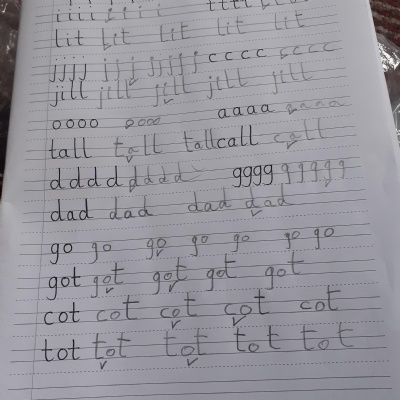 iiii iiii tttt
lit lit lit lit lit
jjjj jjj jjjjj cccc cccc
jill jill jill jill jill
oooo oooo aaaa aaaa
tall tall tall call call
dddd dddd gggg ggggg
dad dad dad dad
go go go go go go go
got got got got got
cot cot cot cot cot
tot tot tot tot tot